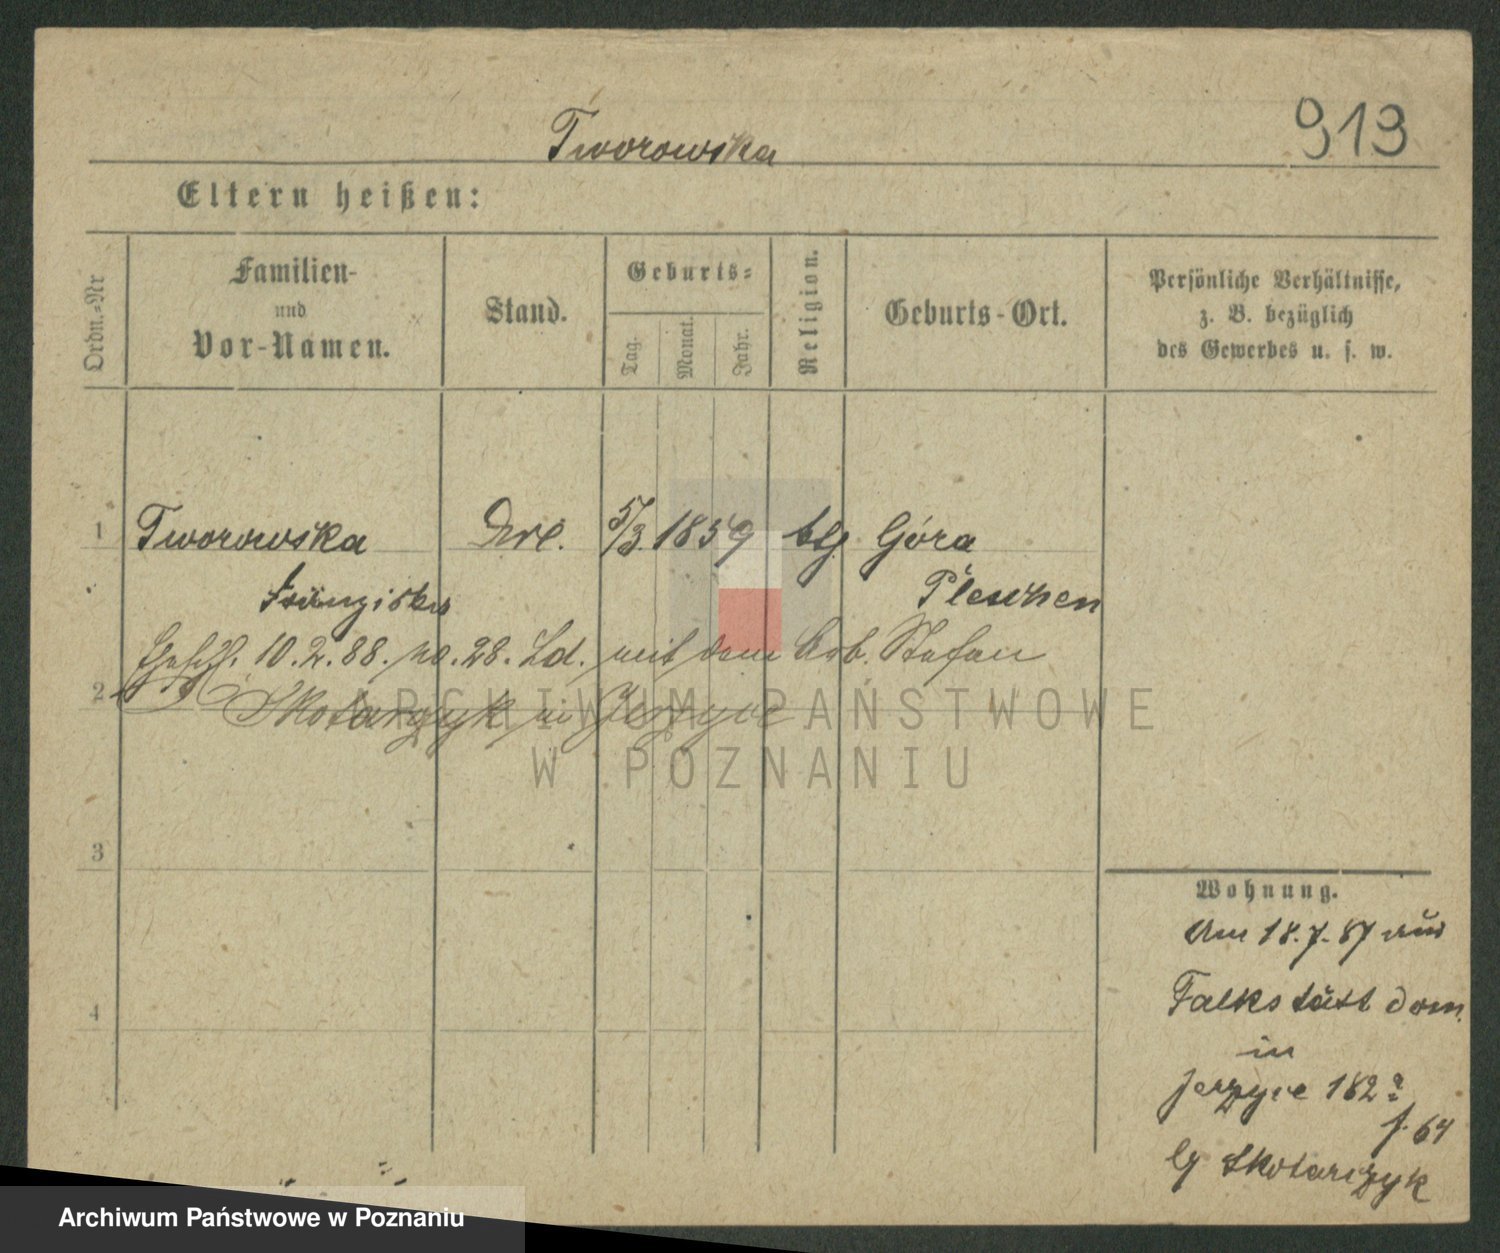 Tworowska
913
Eltern heißen:
Ordn.-Nr
Familien-
und
Vor-Namen.
Stand.
Geburts-
Tag.
Monat.
Jahr.
Religion.
Geburts-Ort.
Persönliche Verhältnisse,
z. B. bezüglich
des Gewerbes u. s. w.
1 Tworowska 5/3. 1859 Góra
Pleschen
10. 2. 88. No. 28. mit dem Arb. Stefan
2 Skotarzyk in Jerzyce
ARCHIWUM PAŃSTWOWE
W POZNANIU
3
4
Wohnung.
Am 18. 7. 87 aus
Falkstätt dom.
in
Jerzyce 182
f. 64
Skotarzyk
Archiwum Państwowe w Poznaniu